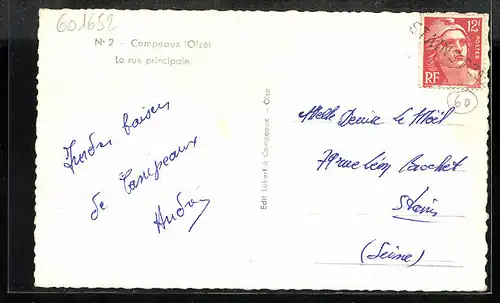 601652
N° 2 - Campeaux (Oise)
La rue principale
12F
POSTES
RF
60
Edit Lelant à Campeaux - Oise
Melle Denise Le Maîl
79 rue Léon
Stains
(Seine)
Tendres baisers
de Campeaux